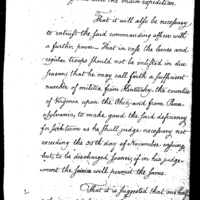 the main expedition.
That it will also be necessary
to entrust the said commanding officer with
a farther power — That in case the levies and
regular troops should not be enlisted in due
season that he may call forth a sufficient
number of militia from Kentucky, the counties
of Virginia upon the Ohio, and from Penn-
sylvania, to make good the said deficiency
for such term as he shall judge necessary not
exceeding the 30th day of November ensuing,
but, to be discharged sooner, if in his judge-
ment the service will permit the same.
That it is suggested that one half